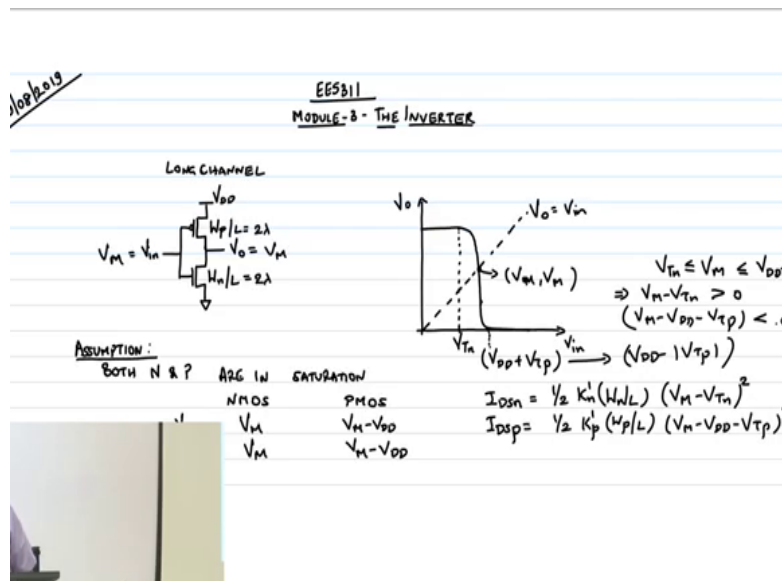 /08/2019
EE5311
MODULE-3 - THE INVERTER
LONG CHANNEL
VDD
Wp/L = 2λ
VM = Vin
Vo = VM
Wn/L = 2λ
Vo
Vo = Vin
(VM, VM)
VTn
(VDD + VTp) → (VDD - |VTp|)
Vin
VTn ≤ VM ≤ VDD
⇒ VM - VTn > 0
(VM - VDD - VTp) <
ASSUMPTION :
BOTH N & P ARE IN SATURATION
NMOS PMOS
VM VM - VDD
VM VM - VDD
IDSn = 1/2 K'n (Wn/L) (VM - VTn)²
IDSp = 1/2 K'p (Wp/L) (VM - VDD - VTp)